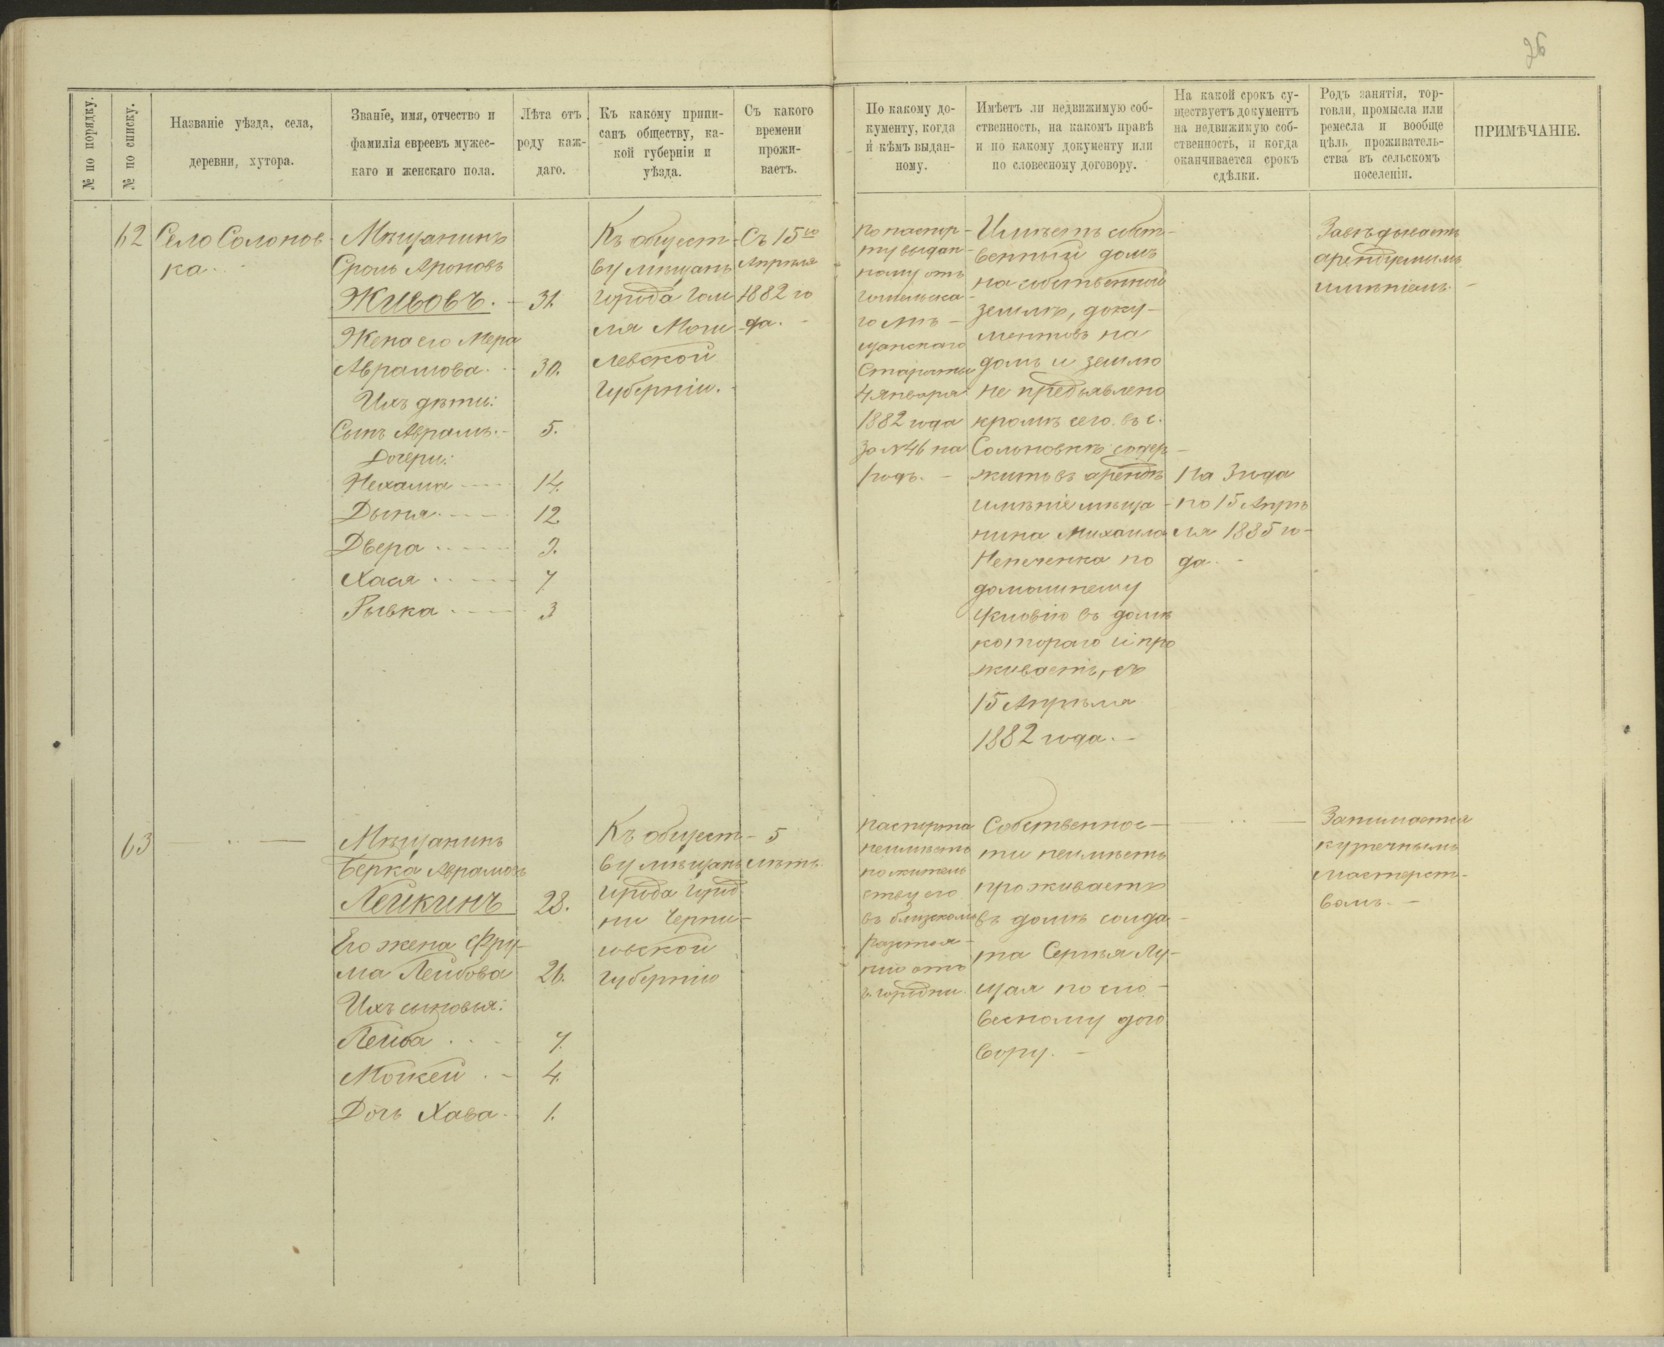 26
№ по порядку.
№ по списку.
Названіе уѣзда, села,
деревни, хутора.
Званіе, имя, отчество и
фамилія евреевъ мужес-
каго и женскаго пола.
Лѣта отъ
роду каж-
даго.
Къ какому припи-
санъ обществу, ка-
кой губерніи и
уѣзда.
Съ какого
времени
прожи-
ваетъ.
По какому до-
кументу, когда
и кѣмъ выдан-
ному.
Имѣетъ ли недвижимую соб-
ственность, на какомъ правѣ
и по какому документу или
по словесному договору.
На какой срокъ су-
ществуетъ документъ
на недвижимую соб-
ственность, и когда
оканчивается срокъ
сдѣлки.
Родъ занятія, тор-
говли, промысла или
ремесла и вообще
цѣль проживатель-
ства въ сельскомъ
поселеніи.
ПРИМѢЧАНІЕ.
62
Село Солонов
ка
Мѣщанинъ
Сроль Ароновъ
Живовъ. - 31.
Жена его Мера
Аврамова. - 30.
Ихъ дѣти:
Сынъ Аврамъ. - 5.
Дочери:
Нехама 14.
Дыня 12
Двера 9.
Хася 7
Рывка 3
Къ общест-
ву мѣщанъ
города Гоме
ля Моги-
левской
губерніи. -
Съ 15го
Апрѣля
1882 го
да. -
по паспор-
ту выдан-
ному отъ
гомельска-
го мѣ-
щанскаго
Старосты
4 января
1882 года
за №46 на
годъ. -
Имѣетъ собст-
венный домъ
на собственной
землѣ, доку-
ментовъ на
домъ и землю
не предъявлено
кромѣ сего въ с.
Солоновкѣ содер-
житъ въ арендѣ
имѣніе мѣща-
нина Михаила
по
домашнему
условію въ домѣ
котораго и про
живаетъ, съ
15 Апрѣля
1882 года. -
на 3 года
по 15 Апрѣ
ля 1885 го-
да. -
Завѣдываетъ
арендуемымъ
имѣніемъ -
63
Мѣщанинъ
Берка Аврамовъ
Лейкинъ 28.
Его жена Фру-
ма Лейбова 26.
Ихъ сыновья:
Лейба 7.
Мойкей 4.
Дочь Хава. 1.
Къ общест-
ву мѣщанъ
города Город
ни Черни-
говской
губерніи
5
лѣтъ
паспорта
неимѣетъ
по житель
ству его
въ близкомъ
разстоя-
ніи отъ
г. Городни
Собственнос-
ти неимѣетъ
проживаетъ
въ домѣ солда-
та Сергѣя Лу-
цая по сло-
весному дого
вору. -
Занимается
кузнечнымъ
мастерст-
вомъ. -